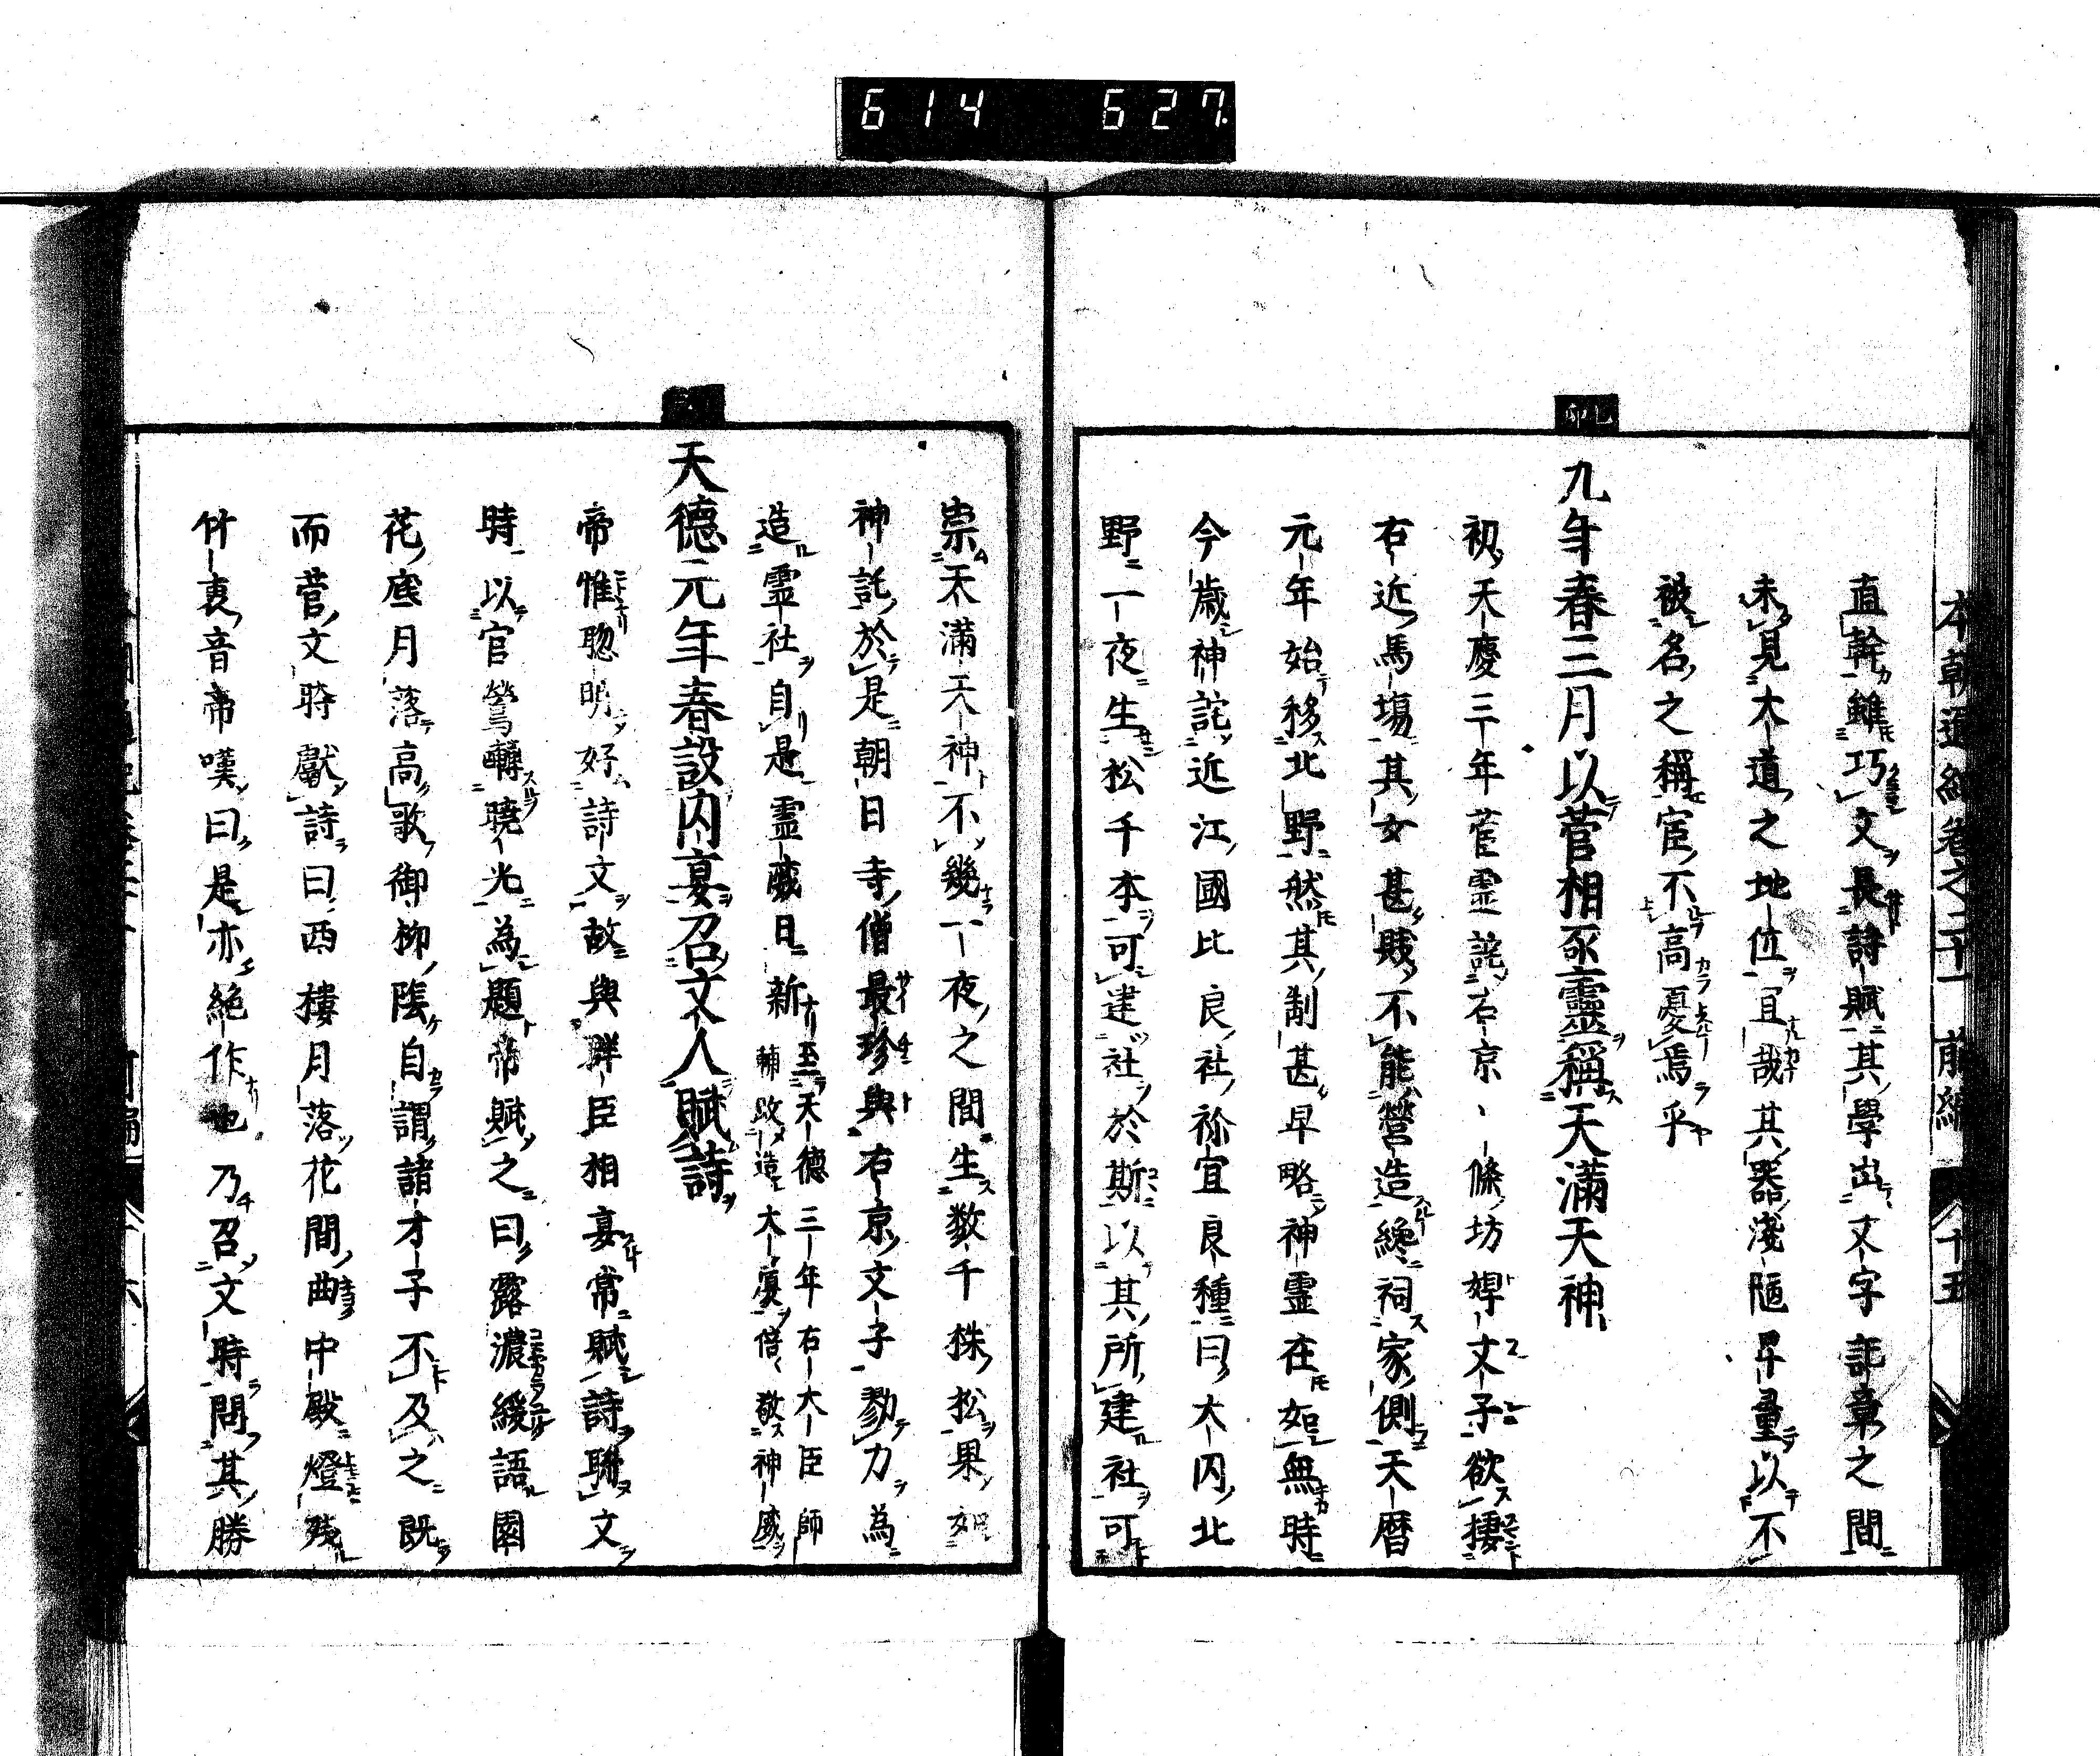 614 627
本朝通紀卷之二十 前編 十五
直幹雖巧文長詩賦其學出文字記章之間
未見大道之地位宜哉其器淺陋早量以不
被名之稱宦不高憂焉乎
乙卯
九年春三月以菅相丞靈稱天滿天神
初天慶三年菅霊託右京七條坊婢文子欲棲
右近馬場其女甚賎不能營造纔祠家側天暦
元年始移北野然其制甚早略神霊在如無時
今歳神詫近江國比良社祢宜良種曰大内北
野一夜生松千本可建社於斯以其所建社可
崇天滿天神不幾一夜之間生数千株松果如
神託於是朝日寺僧最珍與右京文子勠力為
造霊社自是霊威日新 至天德三年右大臣師
輔改造大廈倍敬神威
天德元年春設内宴召文人賦詩
帝惟聡明好詩文故與群臣相宴常賦詩聯文
時以官鶯囀曉光為題帝賦之曰露濃緩語園
花底月落高歌御柳陰自謂諸才子不及之既
而菅文時獻詩曰西樓月落花間曲中殿燈殘
竹裏音帝嘆曰是亦絶作也乃召文時問其勝